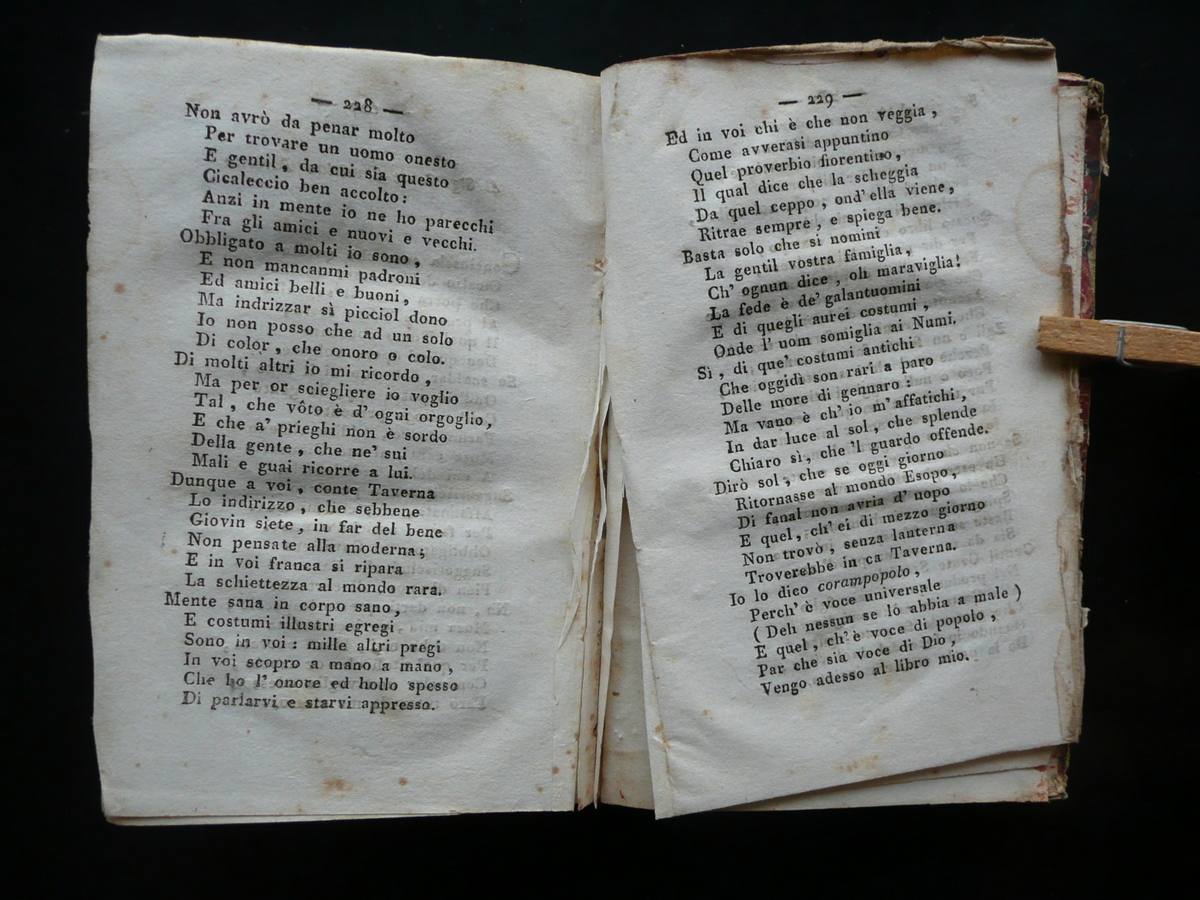 — 228 —
Non avrò da penar molto
Per trovare un uomo onesto
E gentil, da cui sia questo
Cicaleccio ben accolto:
Anzi in mente io ne ho parecchi
Fra gli amici e nuovi e vecchi.
Obbligato a molti io sono,
E non mancanmi padroni
Ed amici belli e buoni,
Ma indrizzar sì picciol dono
Io non posso che ad un solo
Di color, che onoro o colo.
Di molti altri io mi ricordo,
Ma per or sciegliere io voglio
Tal, che vôto è d' ogni orgoglio,
E che a' prieghi non è sordo
Della gente, che ne' sui
Mali e guai ricorre a lui.
Dunque a voi, conte Taverna
Lo indirizzo, che sebbene
Giovin siete, in far del bene
Non pensate alla moderna;
E in voi franca si ripara
La schiettezza al mondo rara.
Mente sana in corpo sano,
E costumi illustri egregi
Sono in voi: mille altri pregi
In voi scopro a mano a mano,
Che ho l' onore ed hollo spesso
Di parlarvi e starvi appresso.
— 229 —
Ed in voi chi è che non veggia,
Come avverasi appuntino
Quel proverbio fiorentino,
Il qual dice che la scheggia
Da quel ceppo, ond' ella viene,
Ritrae sempre, e spiega bene.
Basta solo che si nomini
La gentil vostra famiglia,
Ch' ognun dice, oh maraviglia!
La fede è de' galantuomini
E di quegli aurei costumi,
Onde l' uom somiglia ai Numi.
Sì, di que' costumi antichi
Che oggidì son rari a paro
Delle more di gennaro:
Ma vano è ch' io m' affatichi,
In dar luce al sol, che splende
Chiaro sì, che 'l guardo offende.
Dirò sol, che se oggi giorno
Ritornasse al mondo Esopo,
Di fanal non avria d' uopo
E quel, ch' ei di mezzo giorno
Non trovò, senza lanterna
Troverebbe in ca Taverna.
Io lo dico corampopolo,
Perch' è voce universale
( Deh nessun se lo abbia a male )
E quel, ch' è voce di popolo,
Par che sia voce di Dio,
Vengo adesso al libro mio.